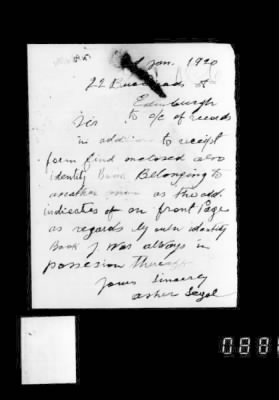 Jan. 1920
22 St
Edinburgh
Sir to o/c of records
in addition to receipt
form find inclosed also
identity Book Belonging to
another man as the add
indicates of on front Page
as regards my own identity
Book I was always in
possesion thereof
yours Sincerely
Asher Segal
088